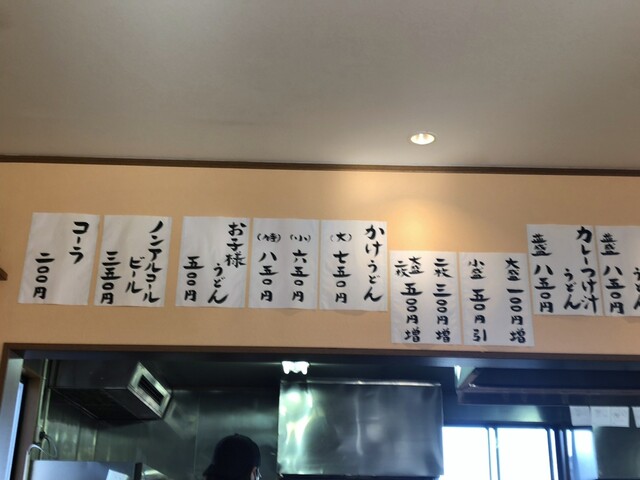 うどん
並盛 八五〇円
カレーつけ汁
うどん
並盛 八五〇円
大盛 一〇〇円増
小盛 五〇円引
二枚 三〇〇円増
大盛二枚 五〇〇円増
かけうどん
(大) 七五〇円
(小) 六五〇円
(特) 八五〇円
お子様
うどん
五〇〇円
ノンアルコール
ビール
三五〇円
コーラ
二〇〇円